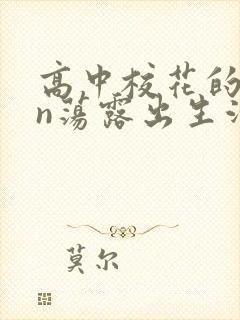 高中校花的
n荡露出生活
莫尔